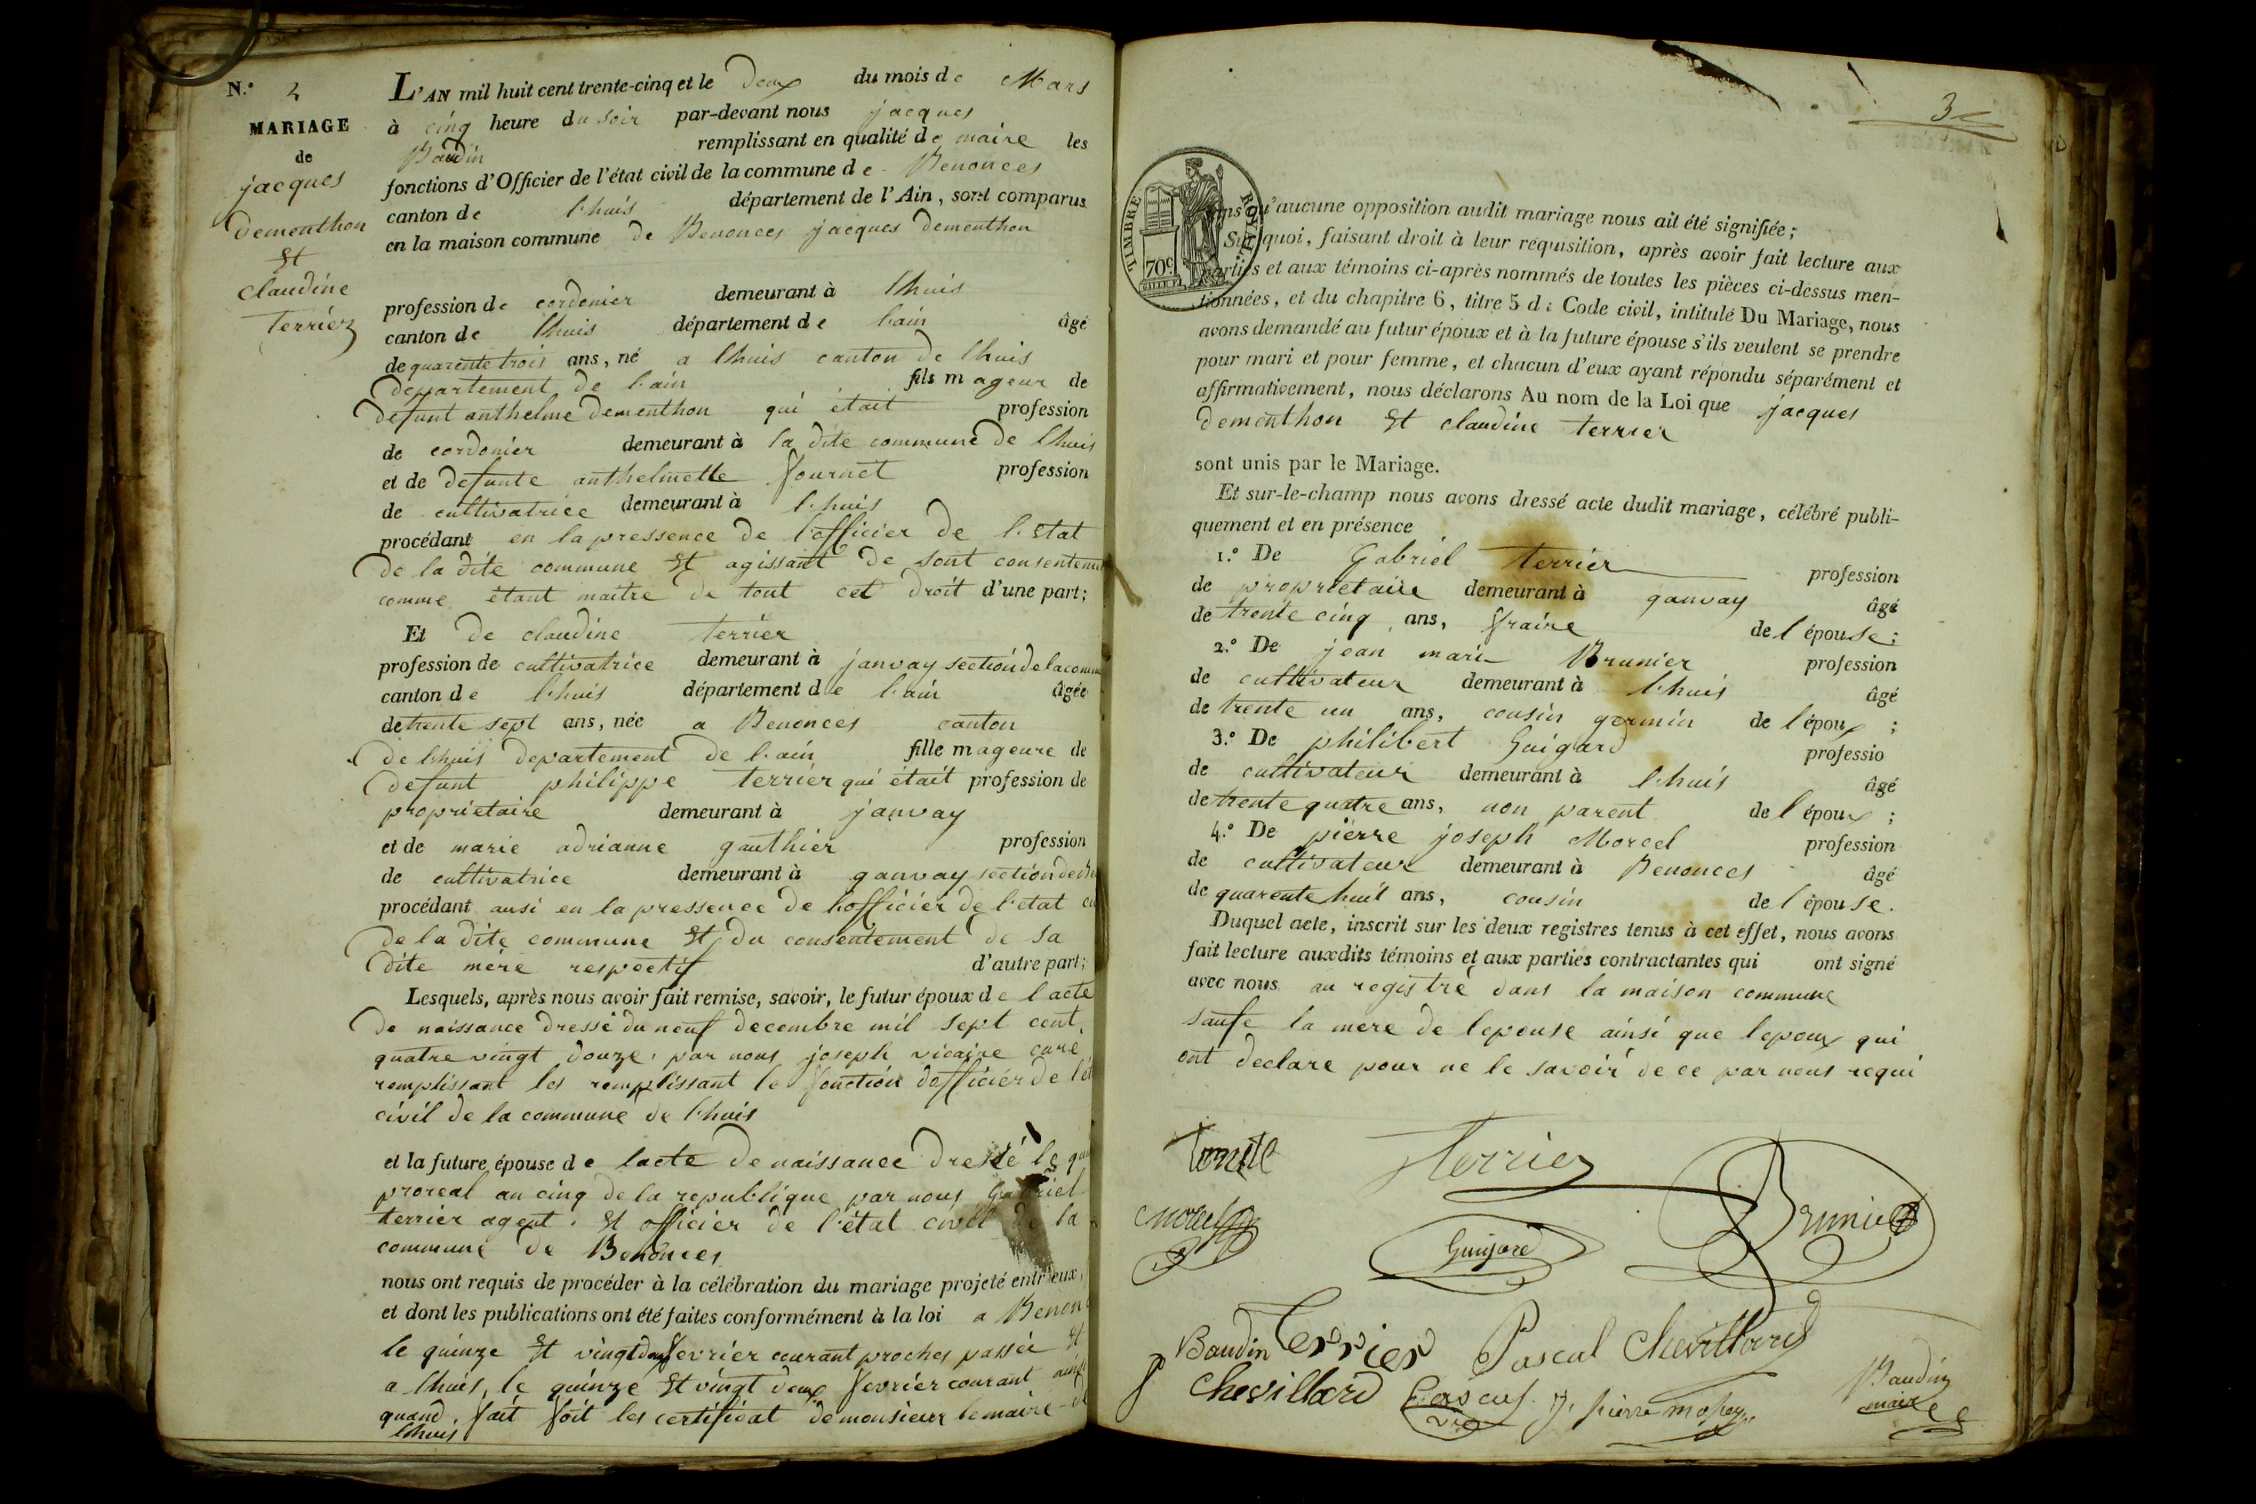 N.º
MARIAGE
de
jacques
dementhon
Et
claudine
terrier
L'AN mil huit cent trente-cinq et le deux du mois de Mars
à cinq heure du soir par-devant nous jacques
Baudin remplissant en qualité de maire les
fonctions d'Officier de l'état civil de la commune de Benonces
canton de lhuis département de l'Ain, sont comparus
en la maison commune de Benonces jacques dementhon
profession de cordonier demeurant à lhuis
canton de lhuis département de lain âgé
de quarente trois ans, né a lhuis canton de lhuis
departement de lain fils mageur de
defunt anthelme dementhon qui était profession
de cordonier demeurant à la dite commune de lhuis
et de defunte anthelmette fournet profession
de cultivatrice demeurant à lhuis
procédant en la pressence de lofficier de l'Etat
de la dite commune Et agissant de sont
comme étant maitre de tout cet droit d'une part;
Et de claudine terrier
profession de cultivatrice demeurant à janvay section de la
canton de lhuis département de lain âgée
de trente sept ans, née a Benonces canton
de lhuis departement de lain fille mageure de
defunt philippe terrier qui était profession de
proprietaire demeurant à janvay
et de marie adrianne gauthier profession
de cultivatrice demeurant à ganvay section de
procédant ausi en la pressence de lofficier de l'état
de la dite commune Et du consentement de sa
dite mere respectif d'autre part;
Lesquels, après nous avoir fait remise, savoir, le futur époux de l'acte
de naissance dressé du neuf decembre mil sept cent
quatre vingt douze, par nous joseph vicaire curé
remplissant les remplissant le fonction dofficier de
civil de la commune de lhuis
et la future épouse de lacte de naissance dressé le
proreal an cinq de la republique par nous Gabriel
terrier agent Et officier de l'état civil de la
commune de Benonces
nous ont requis de procéder à la célébration du mariage projeté entr'eux,
et dont les publications ont été faites conformément à la loi a
le quinze Et vingt deux fevrier courant proches passée Et
a lhuis, le quinze Et vingt deux fevrier courant
quand fait foit les certificat de monsieur le maire
lhuis
3
TIMBRE ROYAL
70c
sans qu'aucune opposition audit mariage nous ait été signifiée;
Sur quoi, faisant droit à leur réquisition, après avoir fait lecture aux
parties et aux témoins ci-après nommés de toutes les pièces ci-dessus men-
tionnées, et du chapitre 6, titre 5 du Code civil, intitulé Du Mariage, nous
avons demandé au futur époux et à la future épouse s'ils veulent se prendre
pour mari et pour femme, et chacun d'eux ayant répondu séparément et
affirmativement, nous déclarons Au nom de la Loi que jacques
dementhon Et claudine terrier
sont unis par le Mariage.
Et sur-le-champ nous avons dressé acte dudit mariage, célébré publi-
quement et en présence
1.º De Gabriel terrier profession
de proprietaire demeurant à ganvay âgé
de trente cinq ans, fraire de l'épouse;
2.º De jean marie Brunier profession
de cultivateur demeurant à lhuis âgé
de trente un ans, cousin germin de l'époux;
3.º De philibert Guigard professio
de cultivateur demeurant à lhuis âgé
de trente quatre ans, non parent de l'époux;
4.º De pierre joseph Morel profession
de cultivateur demeurant à Benonces âgé
de quarente huit ans, cousin de l'épouse.
Duquel acte, inscrit sur les deux registres tenus à cet effet, nous avons
fait lecture auxdits témoins et aux parties contractantes qui ont signé
avec nous au registre dans la maison commune
saufe la mere de lepouse ainsi que lepoux qui
ont declare pour ne le savoir de ce par nous requi
Terrier
Brunier
Guigard
Baudin Terrier Pascal Chevillard
Chevillard pierre
Baudin
maire